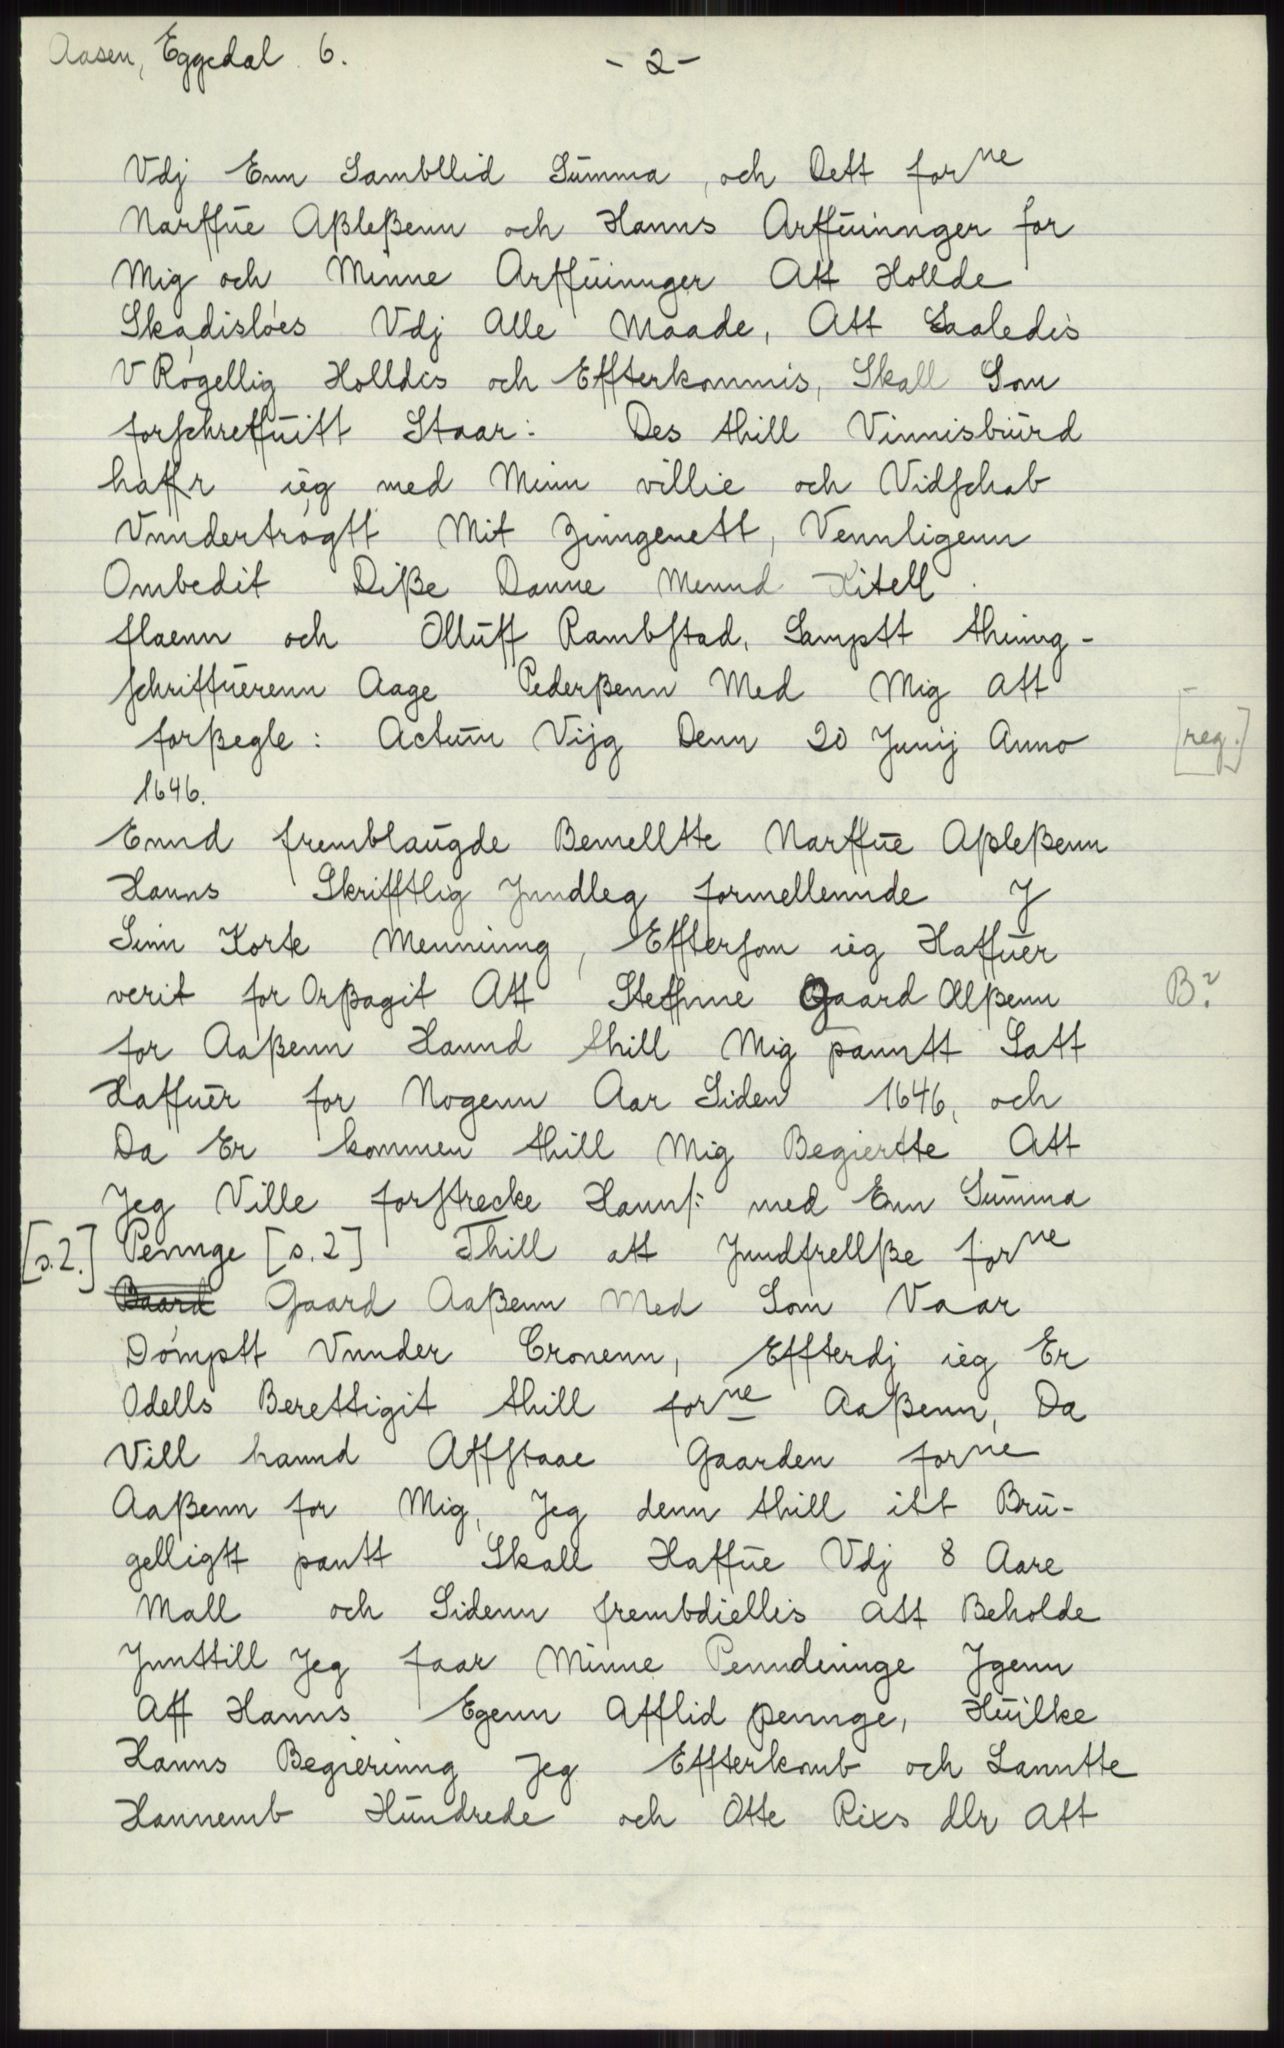 Aasen, Eggedal 6.
- 2 -
Vdj Enn Sambllid Summa, och Dett forne
Narffue Aßleßenn och Hanns Arffuinnger for
Mig och Minne Arffuinnger Att Hollde
Skadisløes Vdj Alle Maade, Att Saaledis
V Røgellig Holldis och Efterkommis, Skall Som
forschreffuitt Staar: Des thill Vinnisbürd
haffr ieg med Minn villie och Vidschab
Vnndertrøgtt Mit Zinngenett, Vennligenn
Ombedit Diße Danne Mennd Kitell
flaenn och Olluff Rambstad, Samptt thinng-
schriffuerenn Aage Pederßenn Med Mig att
forßegle: Actum Vijg Denn 20 Junij Anno
[reg.]
1646.
Ennd fremblaugde Bemellte Narffue Aßleßenn
Hanns Skrifftlig Jnndleg formellennde J
Sinn Korte Menning, Eftersom ieg Haffuer
verit for Orßagit Att Steffnne Gaard Olßenn
B?
for Aaßenn Hannd thill Mig panntt Satt
Haffuer for Nogenn Aar Siden 1646, och
Da Er kommen thill Mig Begiertte Att
Jeg Ville forstrecke Hannß: med Enn Summa
[s.2.] Pennge [s.2] Thill att Jundfrellße forne
Baard Gaard Aaßenn Med Som Vaar
Dømptt Vnnder Cronenn, Effterdj ieg Er
Odells Berettigit thill forne Aaßenn, Da
Vill hannd Affstaae Gaarden forne
Aaßenn for Mig, Jeg denn thill itt Bru-
gelligtt pantt Skall Haffue Vdj 8 Aare
Mall och Sidenn frembdiellis att Beholde
Jnnttill Jeg faar Minne Penndinnge Jgenn
Aff Hanns Egenn Afflid pennge, Huilke
Hanns Begierinng Jeg Effterkomb och Lanntte
Hannemb Hundrede och Otte Rixs dlr Att